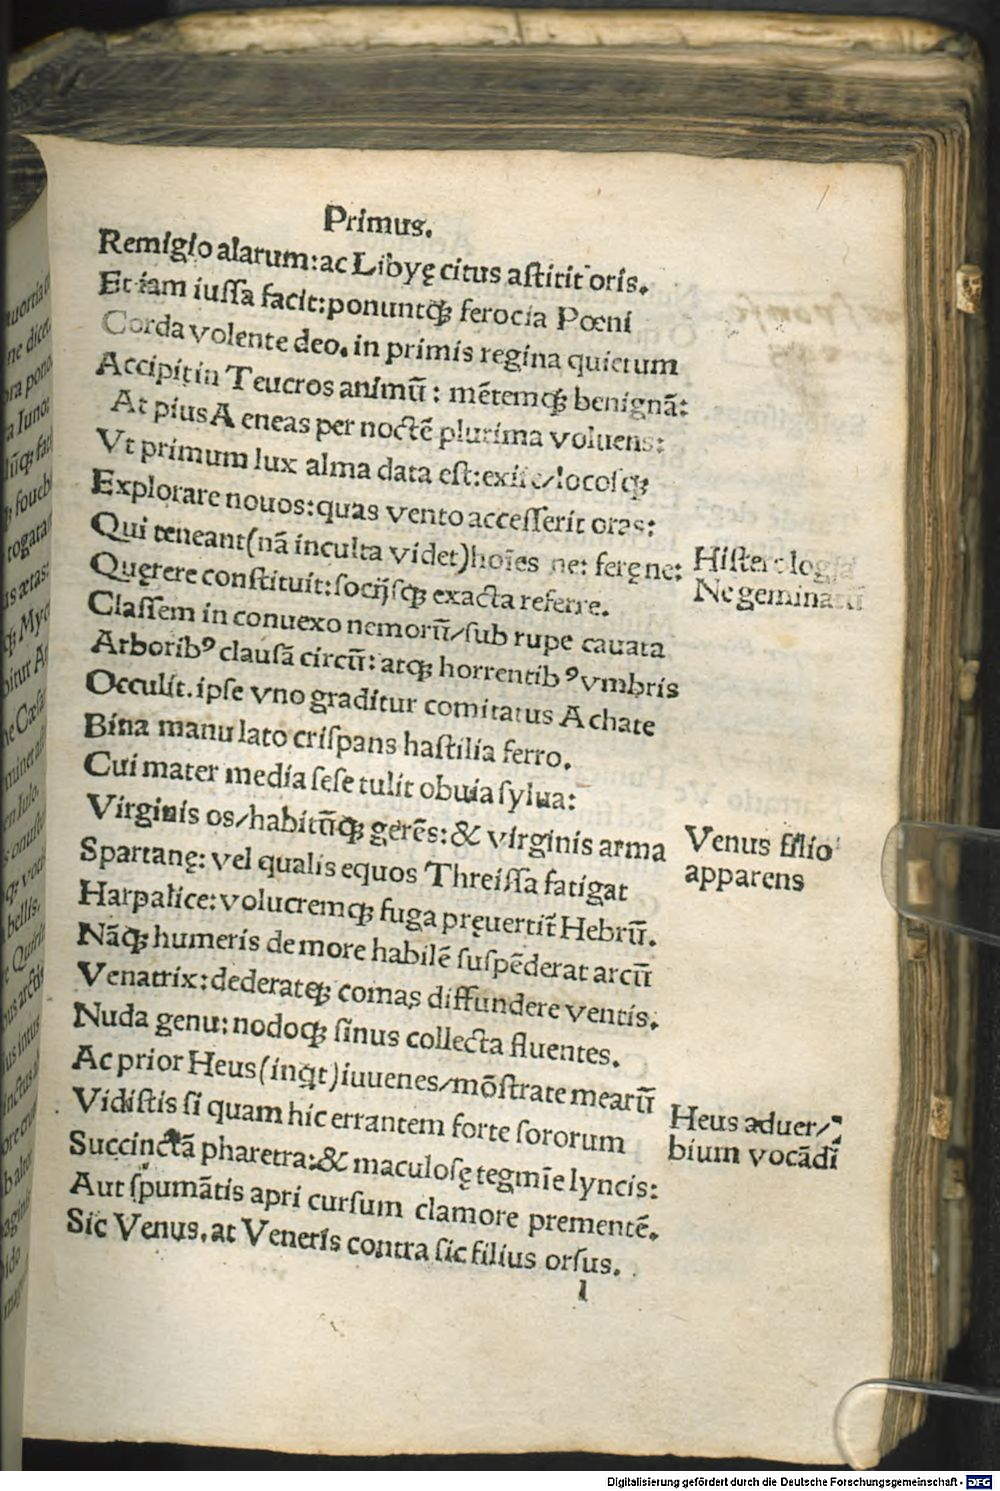 Primus.
Remigio alarum: ac Libyę citus aſtitit oris.
Et iam iuſſa facit: ponuntq́ꝫ ferocia Pœni
Corda volente deo. in primis regina quietum
Accipit in Teucros animū: mētemq́ꝫ benignā:
At pius Aeneas per noctē plurima voluens:
Vt primum lux alma data eſt: exire/locoſq́ꝫ
Explorare nouos: quas vento acceſſerit oras:
Qui teneant (nā inculta videt) hoīes ne: feręne:
Quęrere conſtituit: ſocijſq́ꝫ exacta referre.
Claſſem in conuexo nemorū/ſub rupe cauata
Arboribꝰ clauſā circū: atqꝫ horrentibꝰ vmbris
Occulit. ipſe vno graditur comitatus Achate
Bina manu lato criſpans haſtilia ferro.
Cui mater media ſeſe tulit obuia ſylua:
Virginis os/habitūq́ꝫ gerēs: & virginis arma
Spartanę: vel qualis equos Threiſſa fatigat
Harpalice: volucremq́ꝫ fuga pręuertit̄ Hebrū.
Nāq́ꝫ humeris de more habilē ſuſpēderat arcū
Venatrix: dederatqꝫ comas diffundere ventis.
Nuda genu: nodoq́ꝫ ſinus collecta fluentes.
Ac prior Heus (inqt) iuuenes/mōſtrate mearū
Vidiſtis ſi quam hic errantem forte ſororum
Succinctā pharetra: & maculoſę tegmīe lyncis:
Aut ſpumātis apri curſum clamore prementē.
Sic Venus. at Veneris contra ſic filius orſus.
l
Hiſterologia
Ne geminatū
Venus filio
apparens
Heus aduer/
bium vocādi
Digitalisierung gefördert durch die Deutsche Forschungsgemeinschaft - DFG